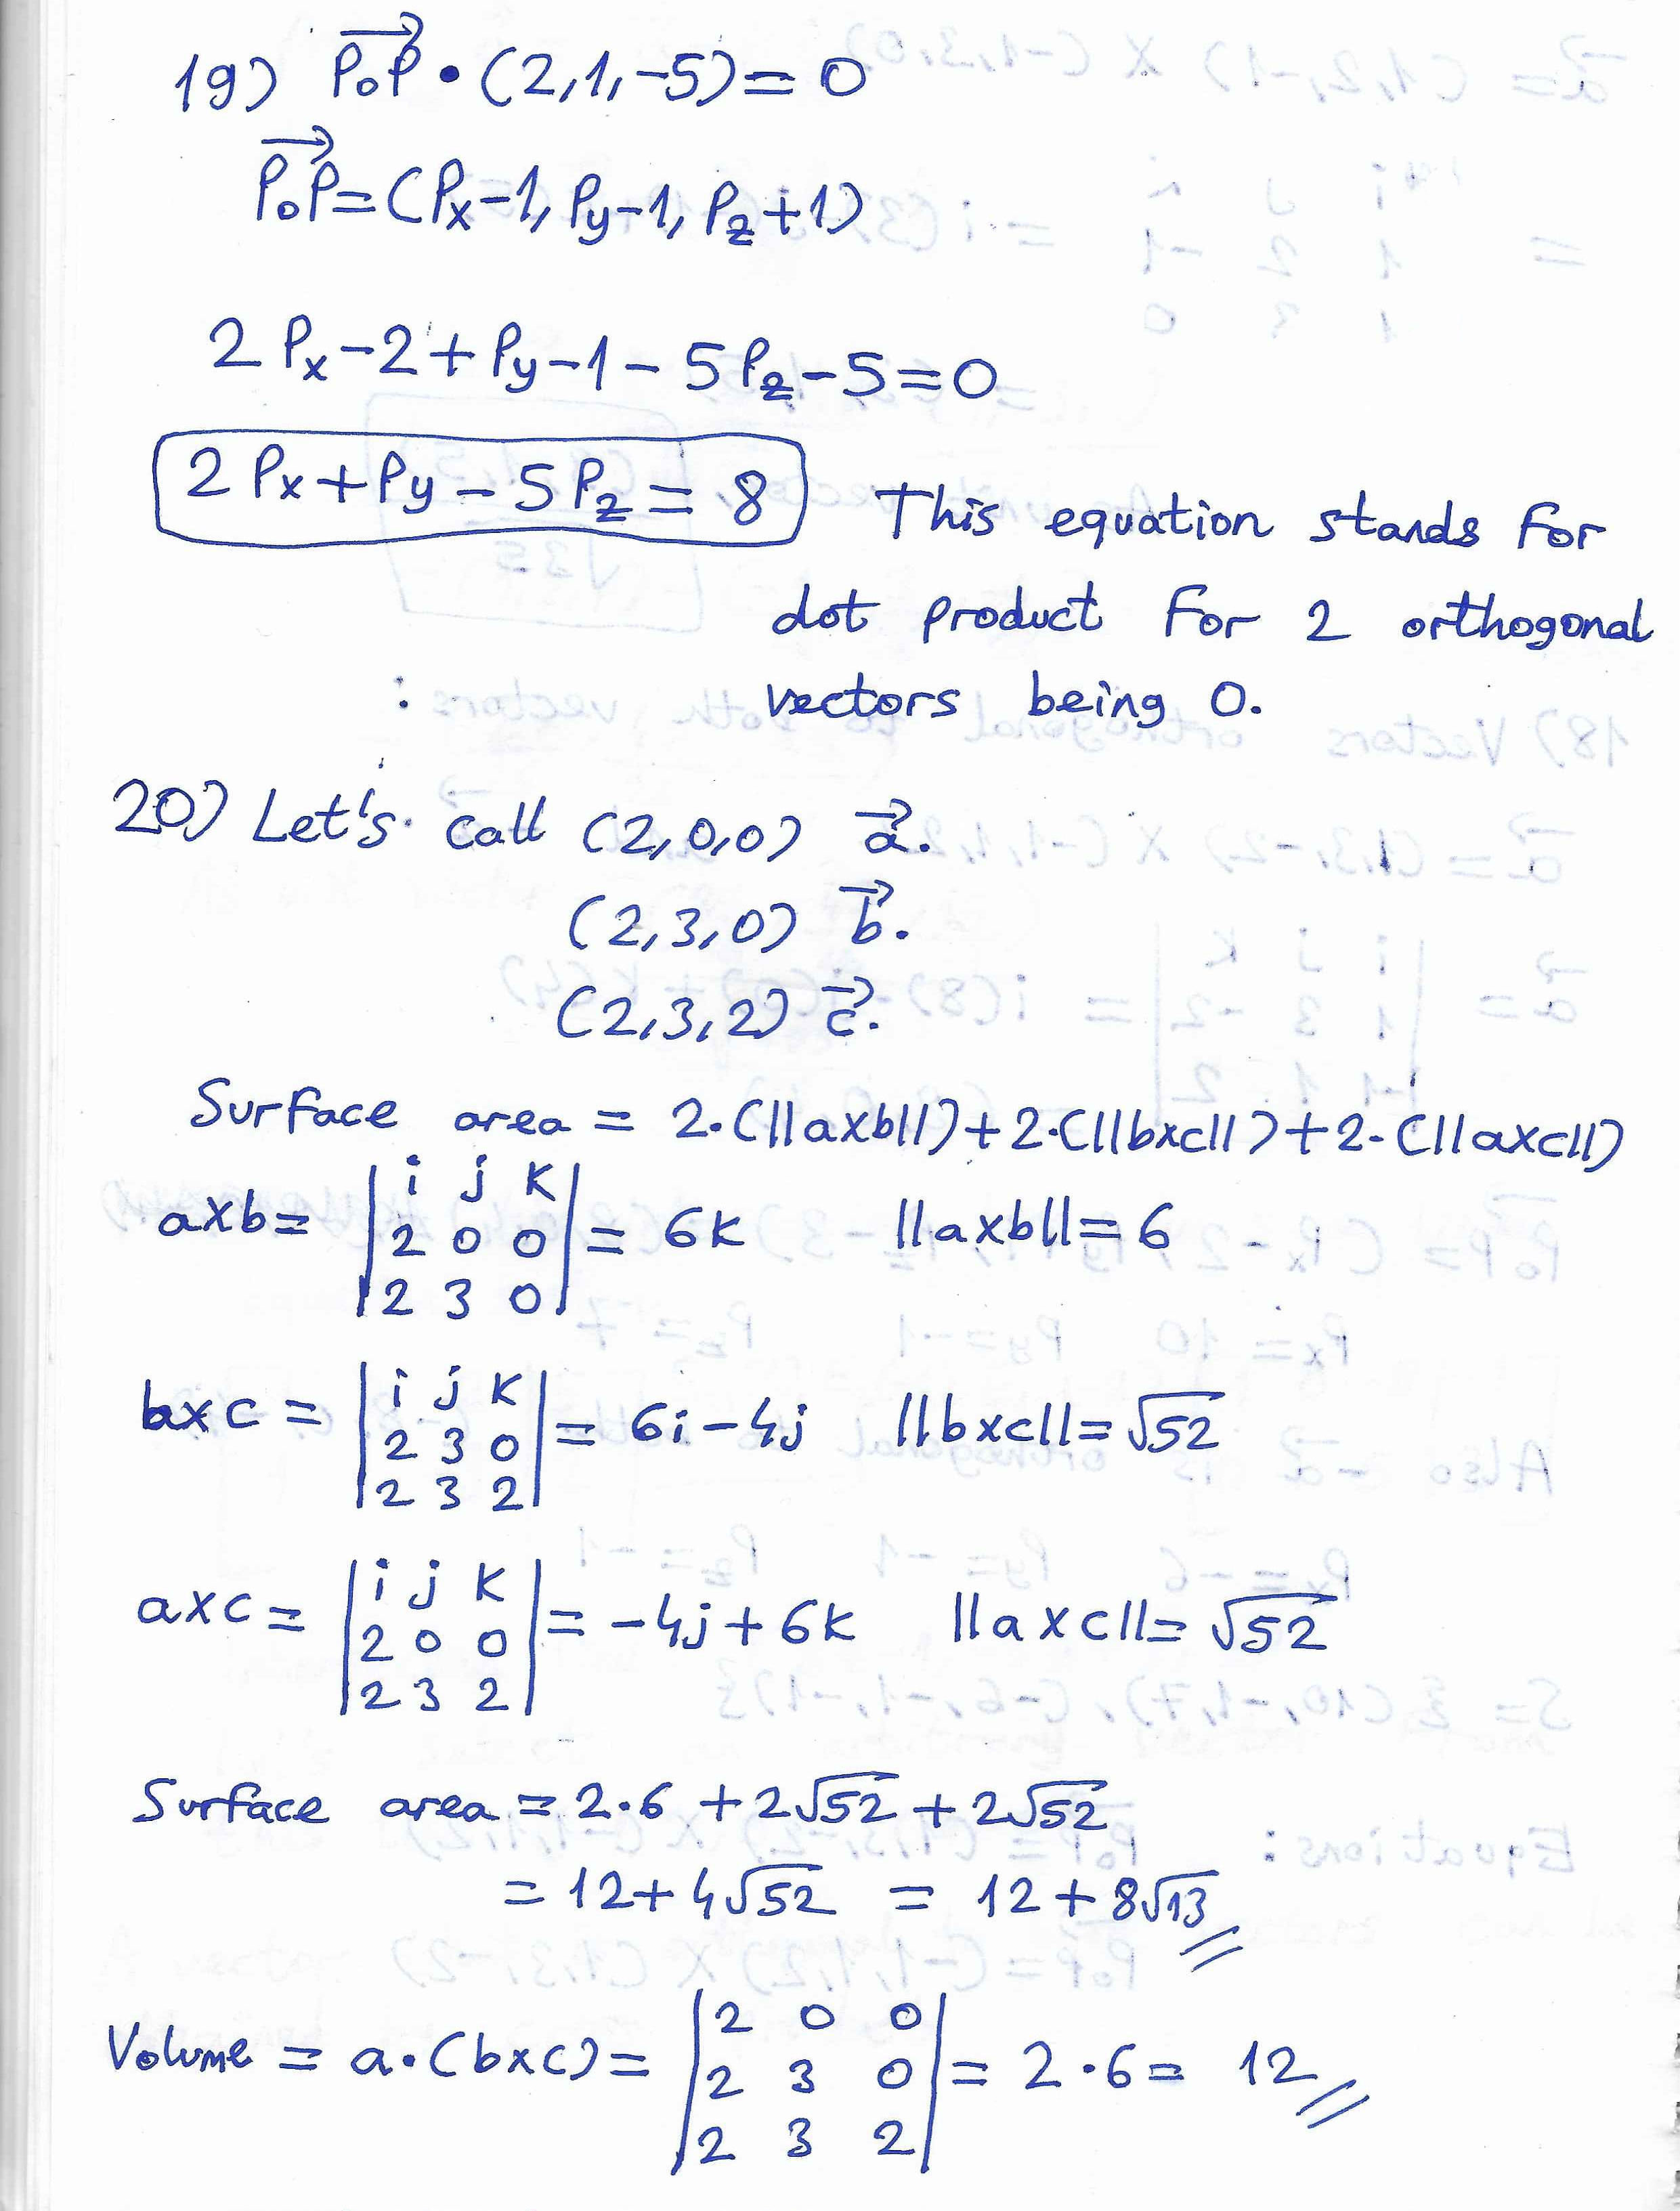 19) P₀P⃗ • (2,1,-5) = 0
P₀P⃗ = (Px-1, Py-1, Pz+1)
2Px-2+Py-1-5Pz-5=0
2Px+Py-5Pz=8 This equation stands for
dot product for 2 orthogonal
vectors being 0.
20) Let's call (2,0,0) a⃗.
(2,3,0) b⃗.
(2,3,2) c⃗.
Surface area = 2.(||axb||)+2.(||bxc||)+2.(||axc||)
axb= |i j k| = 6k ||axb||=6
|2 0 0|
|2 3 0|
bxc = |i j k| = 6i-4j ||bxc||=√52
|2 3 0|
|2 3 2|
axc = |i j k| = -4j+6k ||axc||=√52
|2 0 0|
|2 3 2|
Surface area = 2.6 + 2√52 + 2√52
= 12+4√52 = 12+8√13
Volume = a.(bxc) = |2 0 0| = 2.6 = 12
|2 3 0|
|2 3 2|